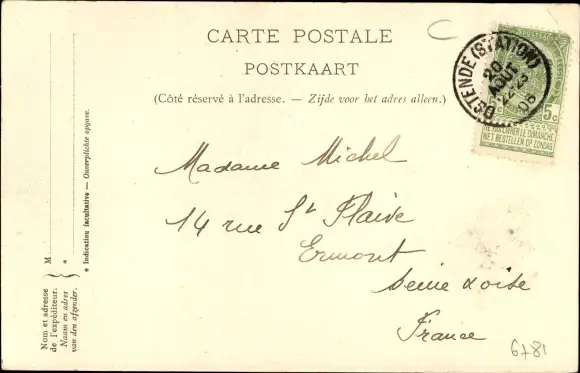 C
CARTE POSTALE
POSTKAART
(Côté réservé à l'adresse. — Zijde voor het adres alleen.)
OSTENDE (STATION)
20
AOUT
22-23
06
5c
NE PAS LIVRER LE DIMANCHE
NIET BESTELLEN OP ZONDAG
Madame Michel
14 rue St Flaive
Ermont
Seine & oise
France
6781
Nom et adresse
de l'expéditeur.
Naam en adres
van den afzender.
M
*
* Indication facultative — Onverplichte opgave.